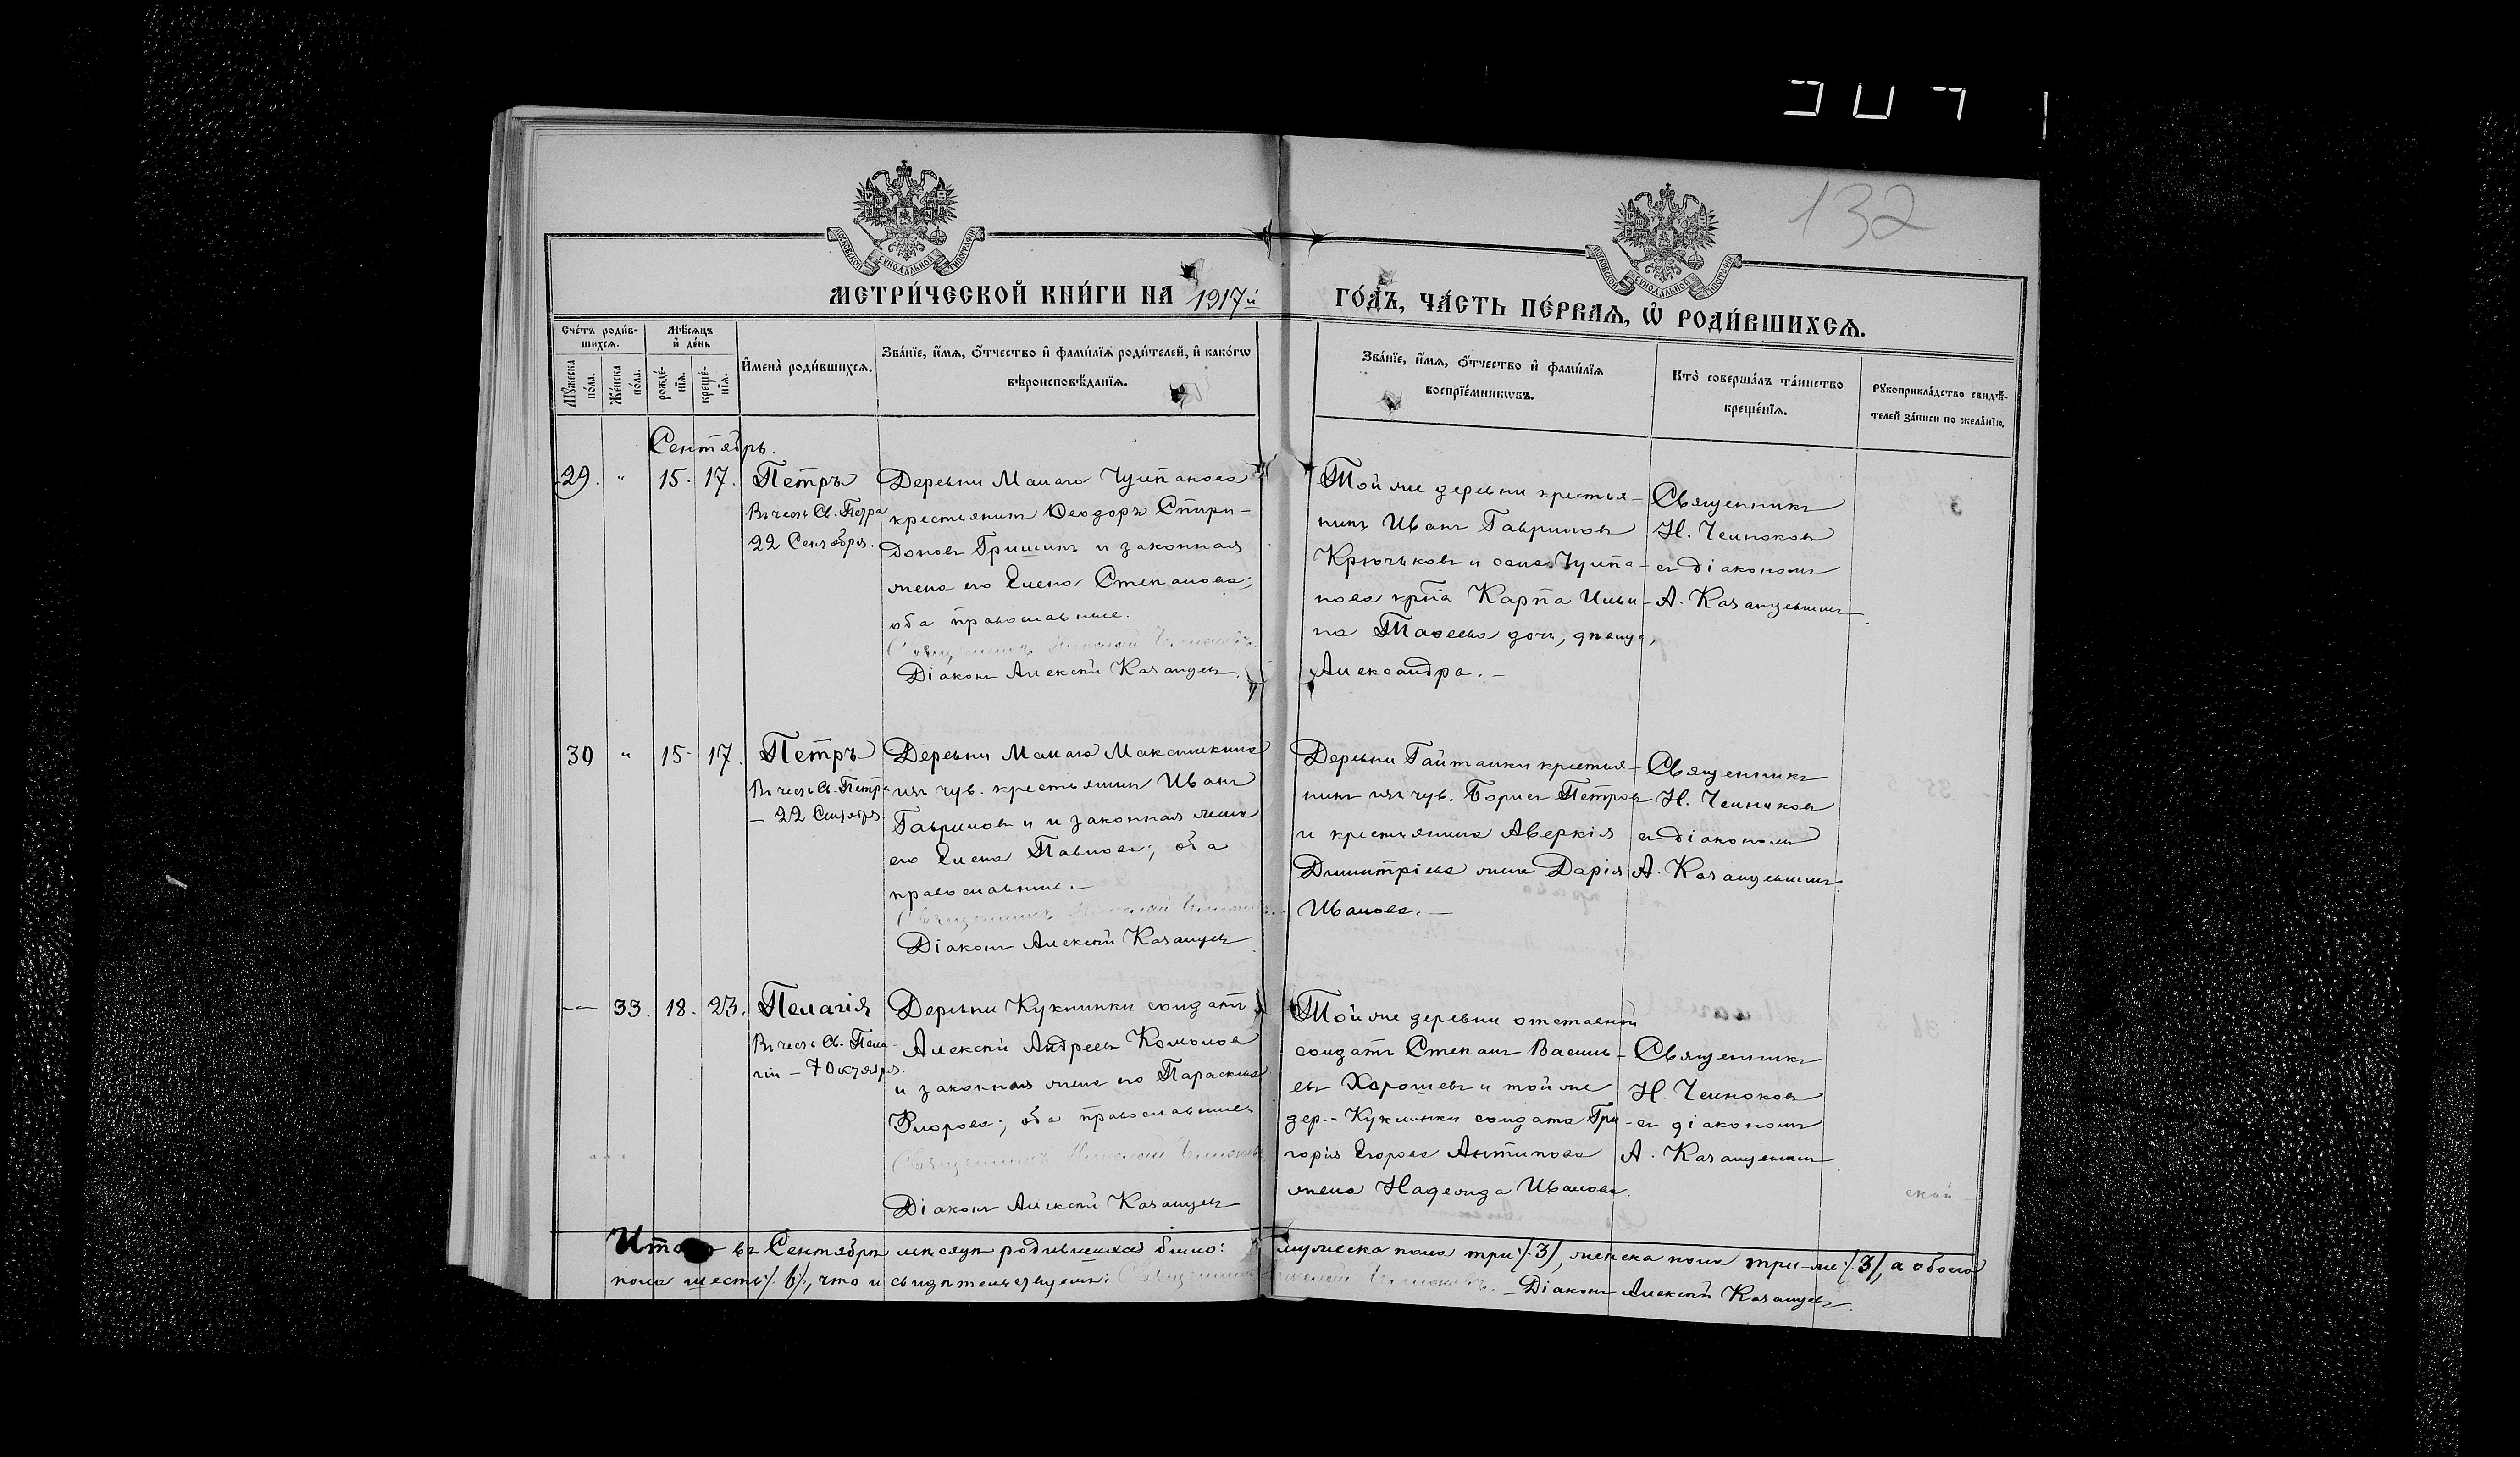 132
МОСКОВСКОЙ СУНОДАЛЬНОЙ ТИПОГРАФІИ
МОСКОВСКОЙ СУНОДАЛЬНОЙ ТИПОГРАФІИ
МЕТРИ́ЧЕСКОЙ КНИ́ГИ НА 1917й ГО́ДЪ, ЧА́СТЬ ПЕ́РВАЯ, Ѡ РОДИ́ВШИХСЯ.
Сче́тъ роди́в-
шихся.
Мꙋжеска по́ла.
Же́нска по́ла.
Мѣ́сяцъ и де́нь
рожде́-
нїя.
креще́-
нїя.
Имена̀ роди́вшихся.
Зва́нїе, и́мя, о́тчество и фами́лїя роди́телей, и како́гѡ
вѣроисповѣ́данїя.
Зва́нїе, и́мя, о́тчество и фами́лїя
воспрїе́мникѡвъ.
Кто̀ соверша́лъ та́инство
креще́нїя.
Рꙋкоприкла́дство свидѣ́-
телей за́писи по жела́нїю.
Сентябрь.
29. " 15. 17. Петръ
Въ честь Св. Петра
22 Сентября.
Деревни Малаго Чуипанова
крестьянинъ Ѳеодоръ Спири-
доновъ Гришинъ и законная
жена его Елена Степанова;
оба православные.
Священникъ Николай
Діаконъ Алексѣй Казанцевъ.
Той же деревни крестья-
нинъ Иванъ Гавриловъ
Крючьковъ и села Чуипа-
нова кр‑на Карпа Ильи-
на дочь, дѣвица,
Александра. -
Священникъ
Н. Челноковъ
съ діакономъ
А. Казанцевымъ.
30 " 15 17. Петръ
Въ честь Св. Петра
- 22 Сентября
Деревни Малаго Максимкина
изъ чув. крестьянинъ Иванъ
Гавриловъ и законная жена
его Елена Павлова; оба
православные. -
Священникъ Николай
Діаконъ Алексѣй Казанцевъ
Деревни Гайтанки крестья-
нинъ изъ чув. Борисъ Петровъ
и крестьянина Аверкія
Димитріева жена Дарія
Иванова. -
Священникъ
Н. Челноковъ
съ діакономъ
А. Казанцевымъ
-- 33. 18. 23. Пелагія
Въ честь Св. Пела-
гіи - 7 Октября.
Деревни Куклинки солдатъ
Алексѣй Андреевъ Комоловъ
и законная жена его Параскева
Флорова; оба православные
Священникъ Николай
Діаконъ Алексѣй Казанцевъ
Той же деревни отставной
солдатъ Степанъ Василь-
евъ Харошевъ и той же
дер. - Куклинки солдата Гри-
горія Егорова Антипова
жена Надежда Иванова.
Священникъ
Н. Челноковъ
съ діакономъ
А. Казанцевымъ.
Итого въ Сентябрѣ мѣсяцѣ родившихся было: мужеска пола три /3/, женска пола три-же /3/, а обоего
пола шесть /6/, что и свидѣтельствуемъ: Священникъ Николай - Діаконъ Алексѣй Казанцевъ.